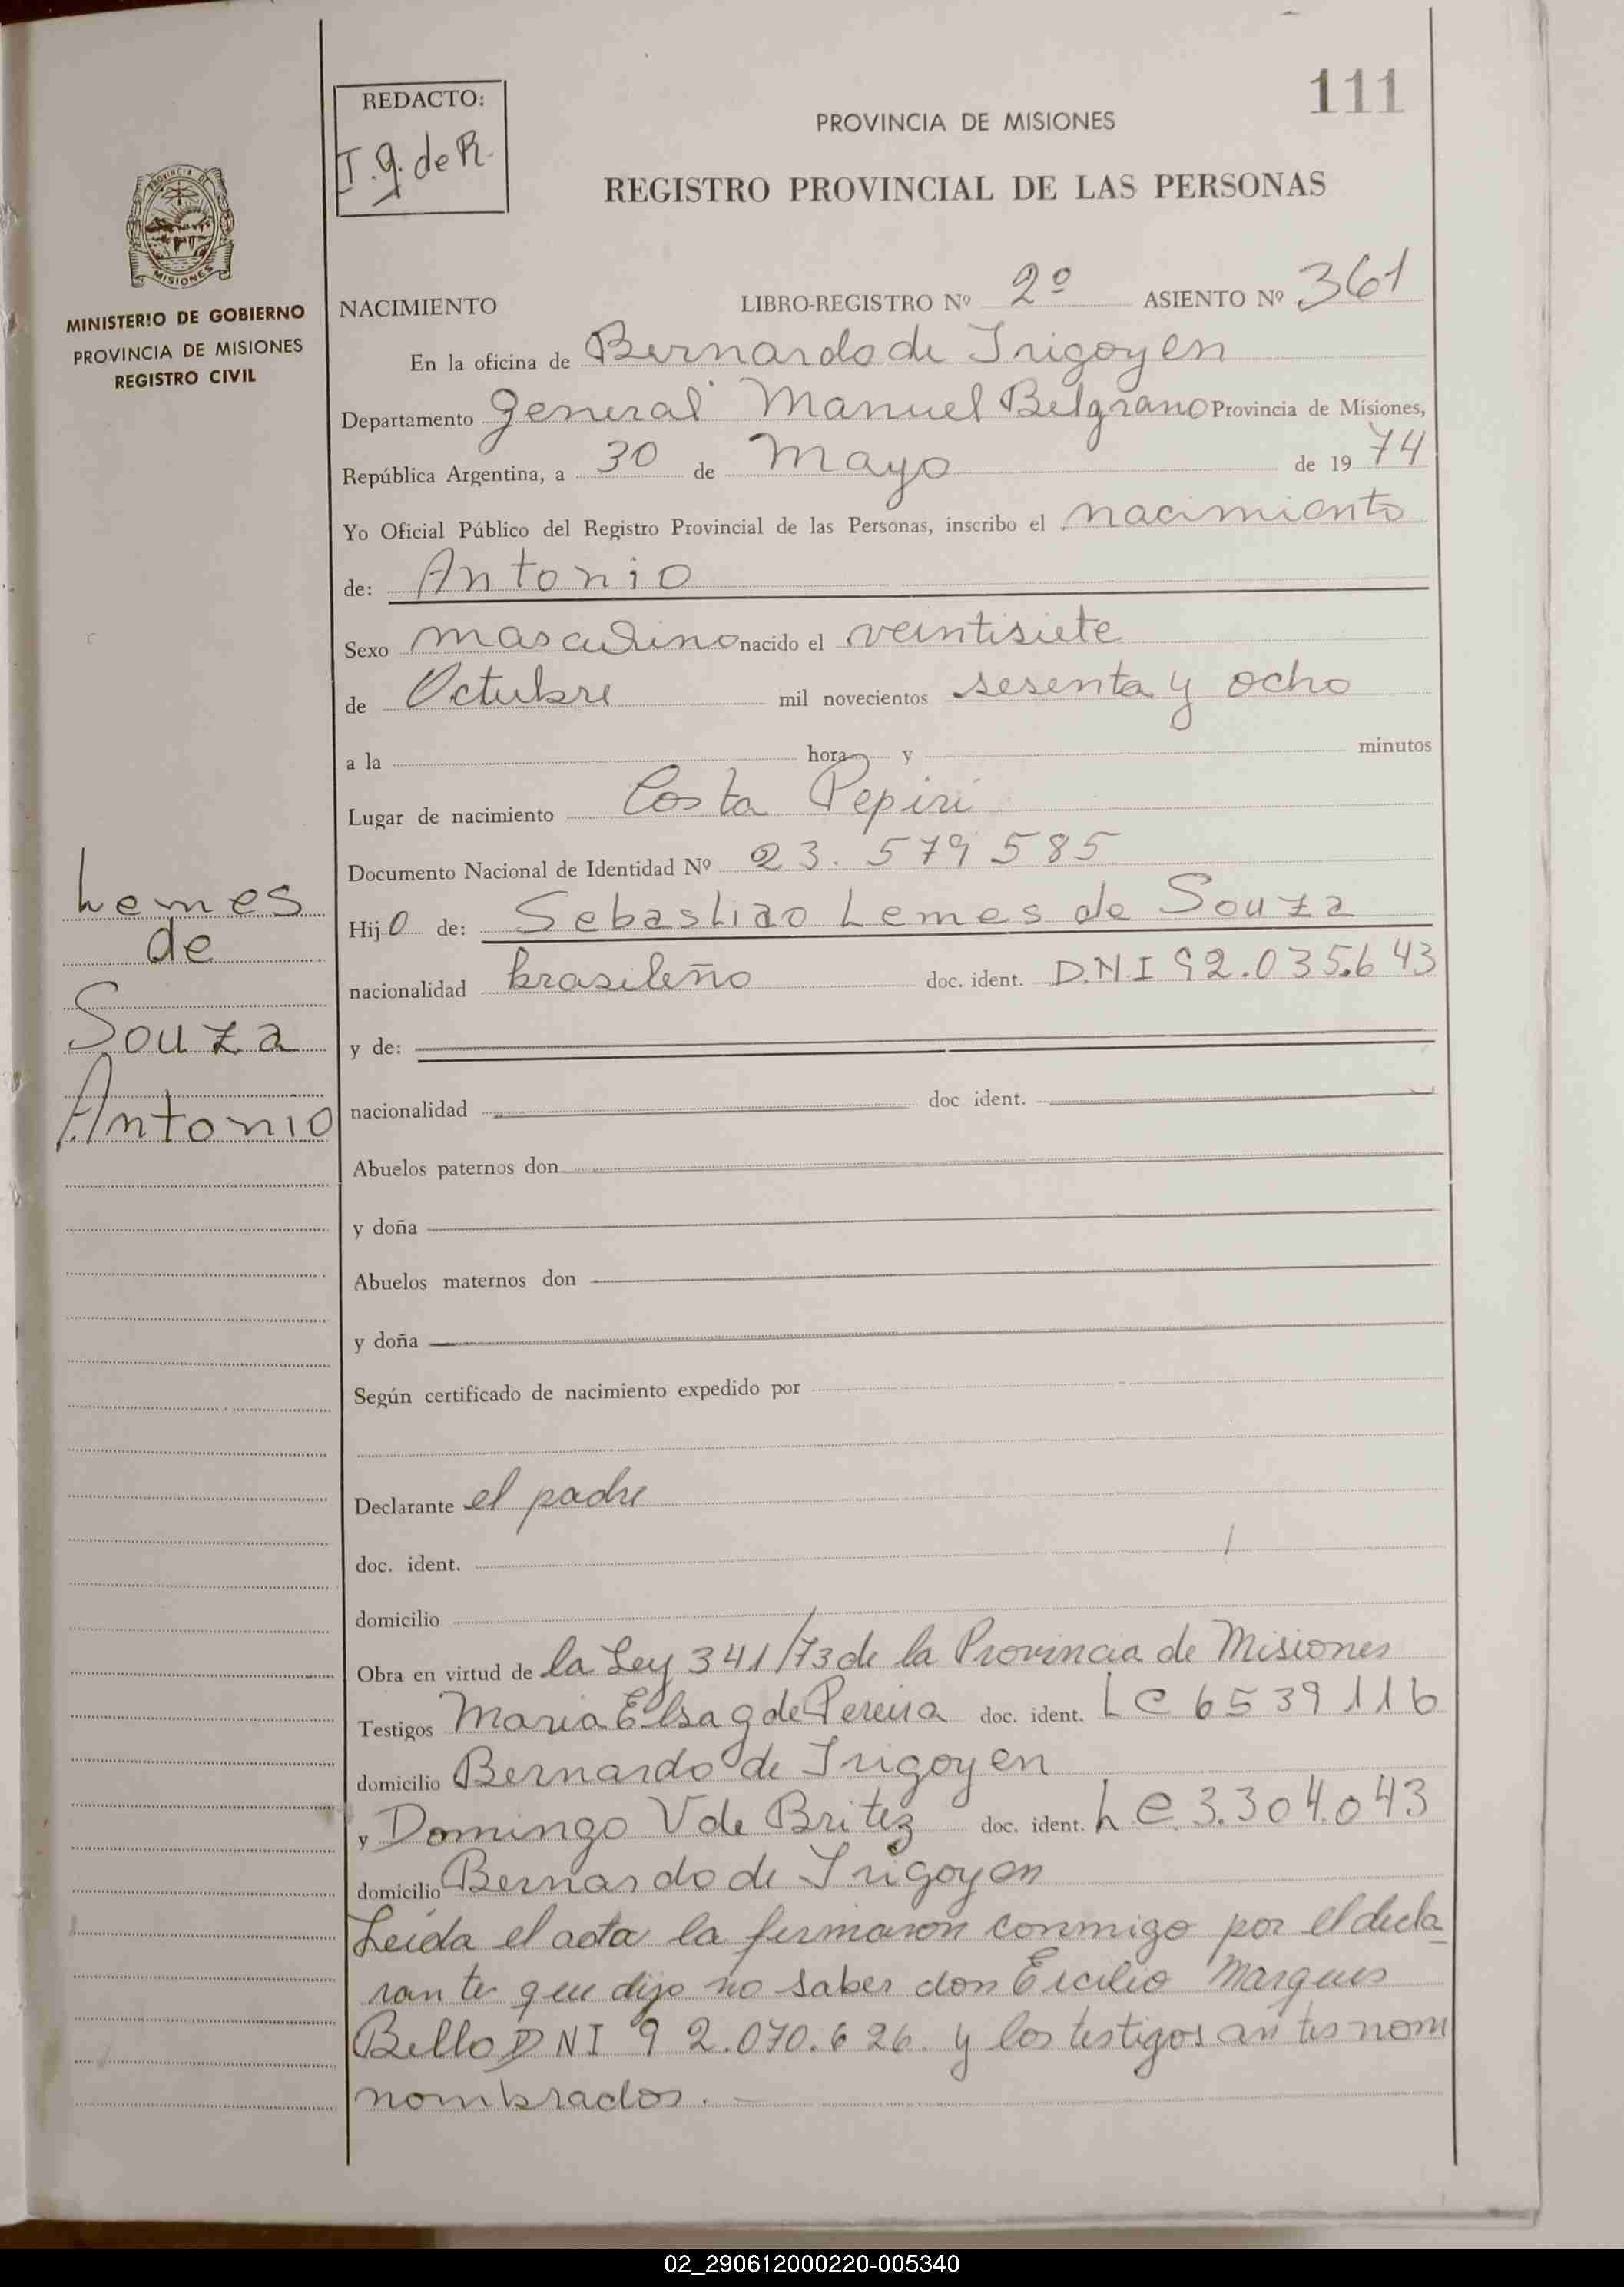 111
REDACTO:
I.g. de R.
PROVINCIA DE MISIONES
REGISTRO PROVINCIAL DE LAS PERSONAS
PROVINCIA DE
MISIONES
MINISTERIO DE GOBIERNO
PROVINCIA DE MISIONES
REGISTRO CIVIL
NACIMIENTO LIBRO-REGISTRO Nº 2º ASIENTO Nº 361
En la oficina de Bernardo de Irigoyen
Departamento General Manuel Belgrano Provincia de Misiones,
República Argentina, a 30 de Mayo de 1974
Yo Oficial Público del Registro Provincial de las Personas, inscribo el nacimiento
de: Antonio
Sexo masculino nacido el veintisiete
de Octubre mil novecientos sesenta y ocho
a la hora y minutos
Lugar de nacimiento Costa Pepiri
Documento Nacional de Identidad Nº 23.579585
Hijo de: Sebastiao Lemes de Souza
nacionalidad brasileño doc. ident. D.N.I 92.035.643
y de:
nacionalidad doc ident.
Abuelos paternos don
y doña
Abuelos maternos don
y doña
Según certificado de nacimiento expedido por
Declarante el padre
doc. ident.
domicilio
Obra en virtud de la Ley 341/73 de la Provincia de Misiones
Testigos Maria Elsa g de Pereira doc. ident. LC 6539116
domicilio Bernardo de Irigoyen
y Domingo V de Britez doc. ident. L e. 3.304.043
domicilio Bernardo de Irigoyen
Leída el acta la firmaron conmigo por el decla
rante que dijo no saber don Ercilio Marques
Bello DNI 92.070.626. y los testigos antes nom
nombrados.
Lemes
de
Souza
Antonio
02_290612000220-005340